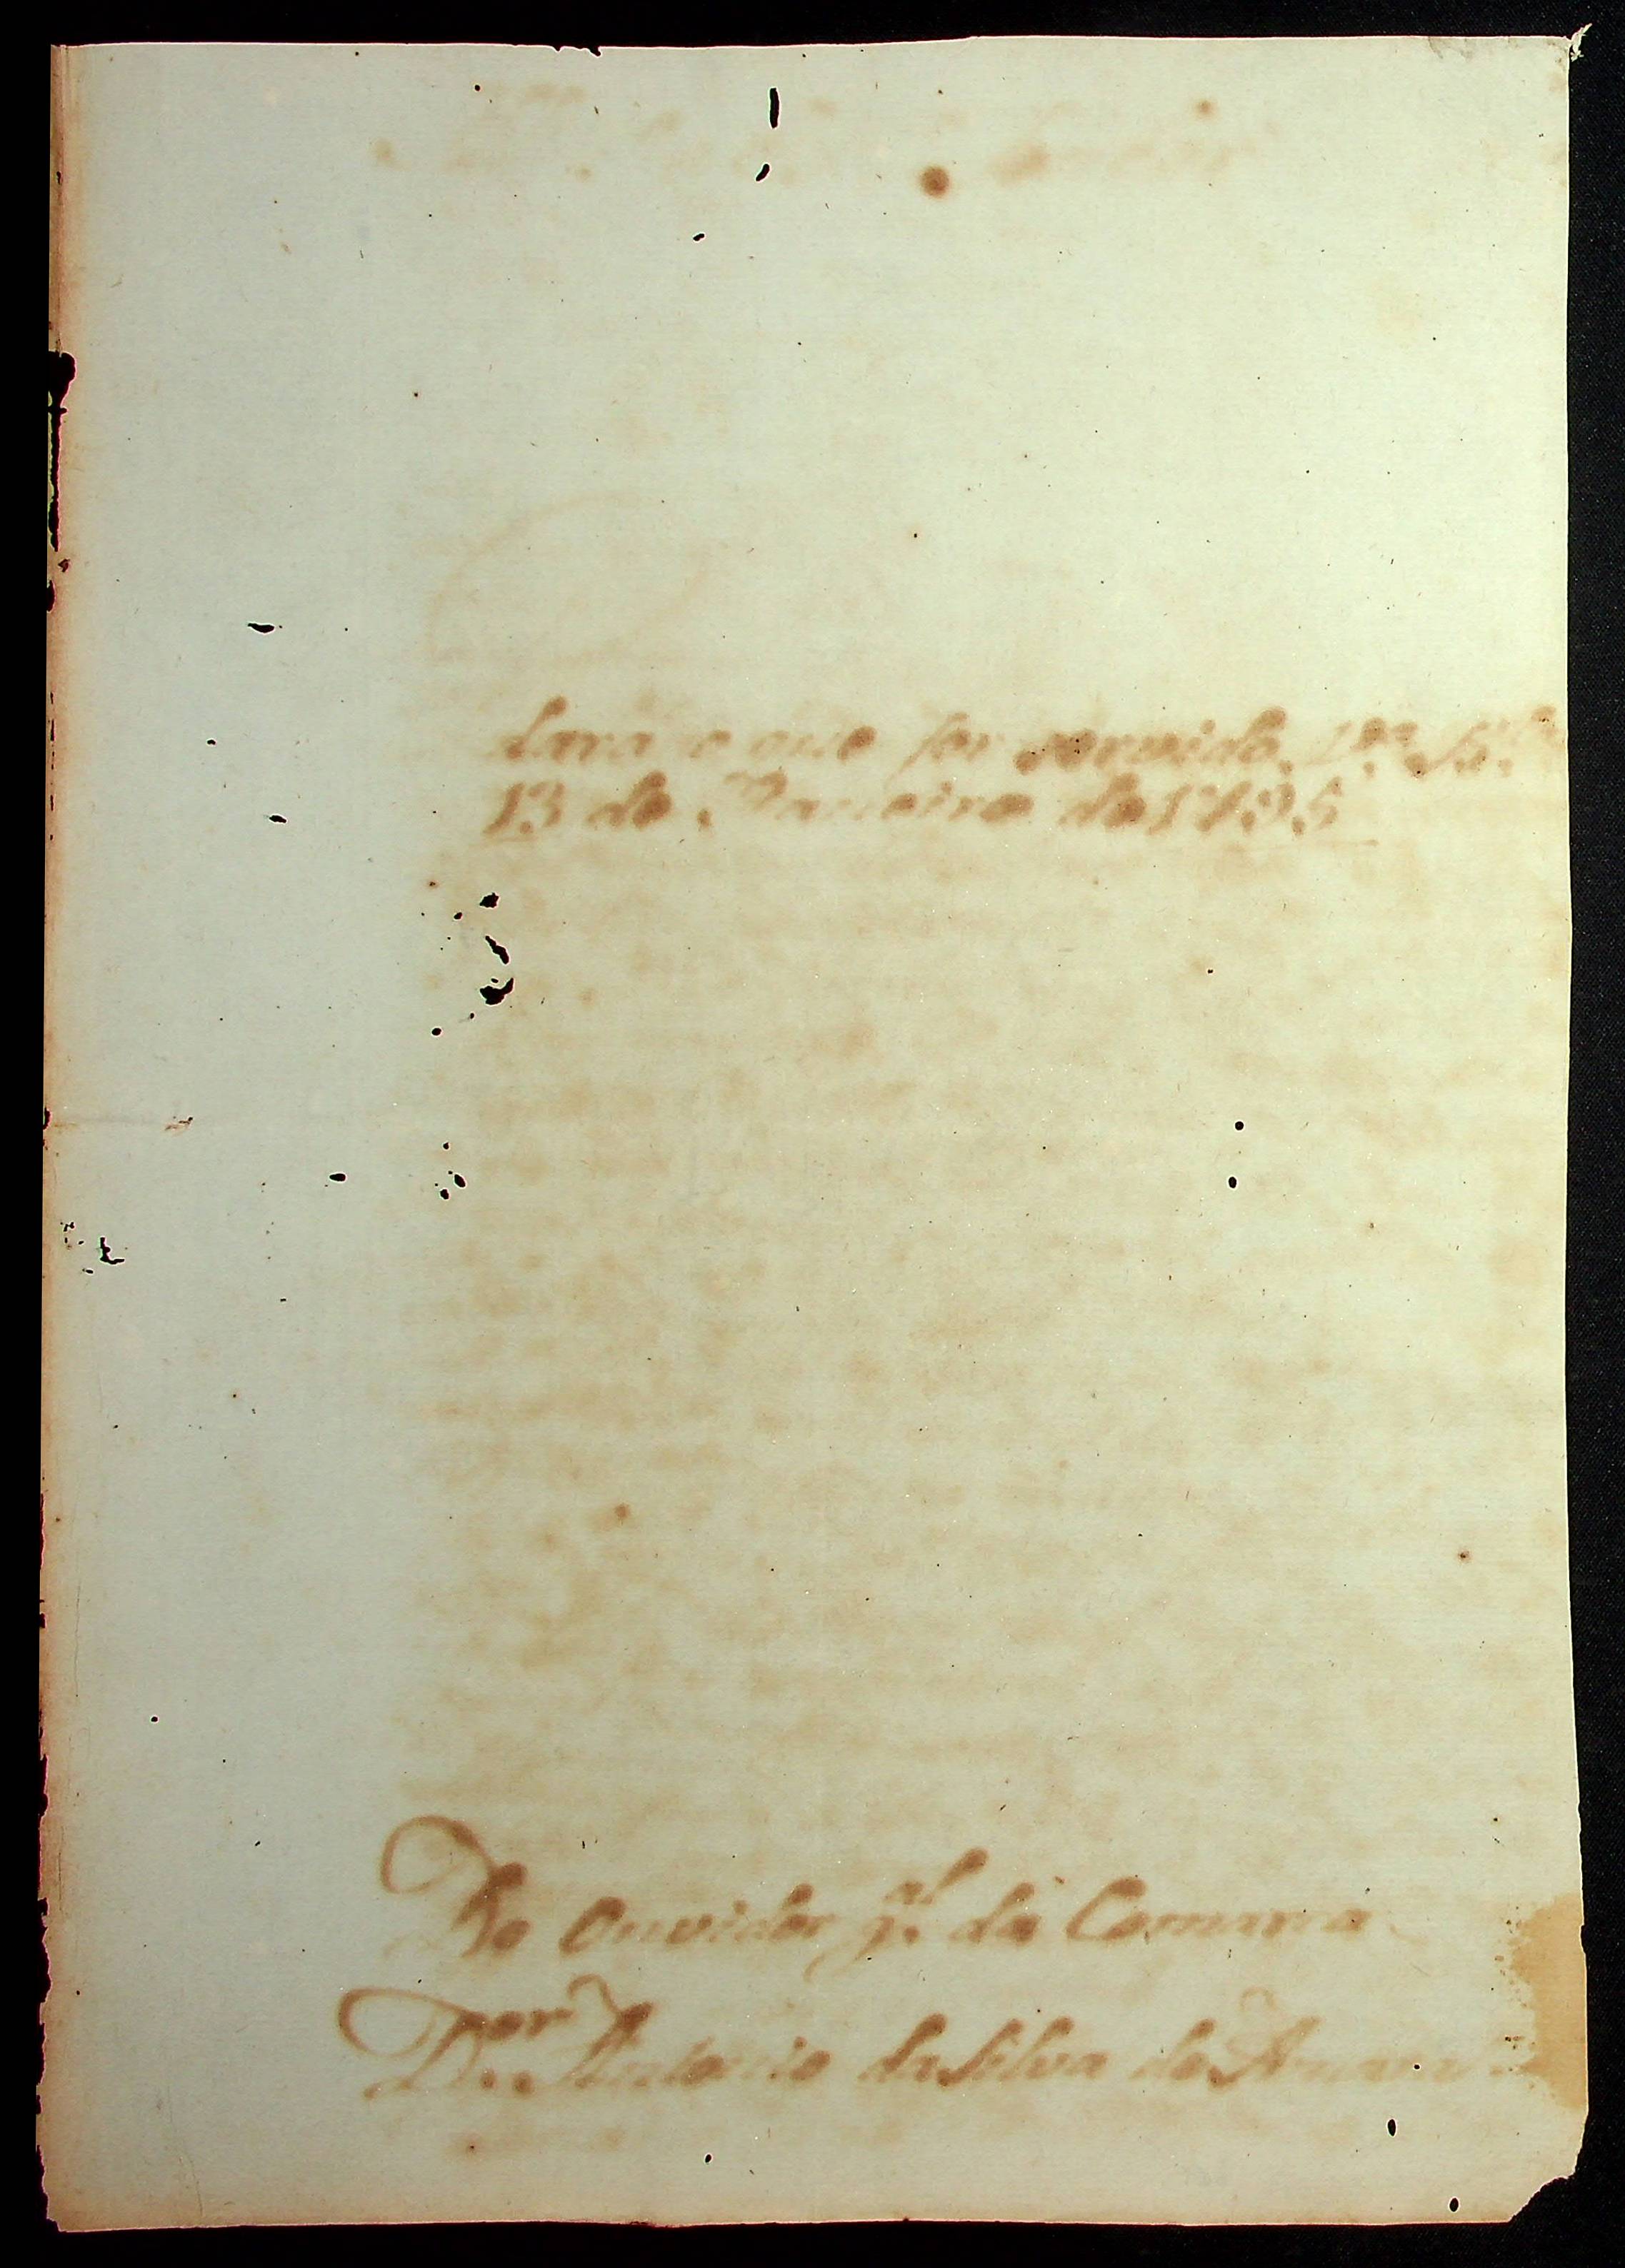 dara o que for servido.
13 de Janeiro de 1795
Do Ouvidor g.al da Comarca
D.or Antonio da Silva do Amaral